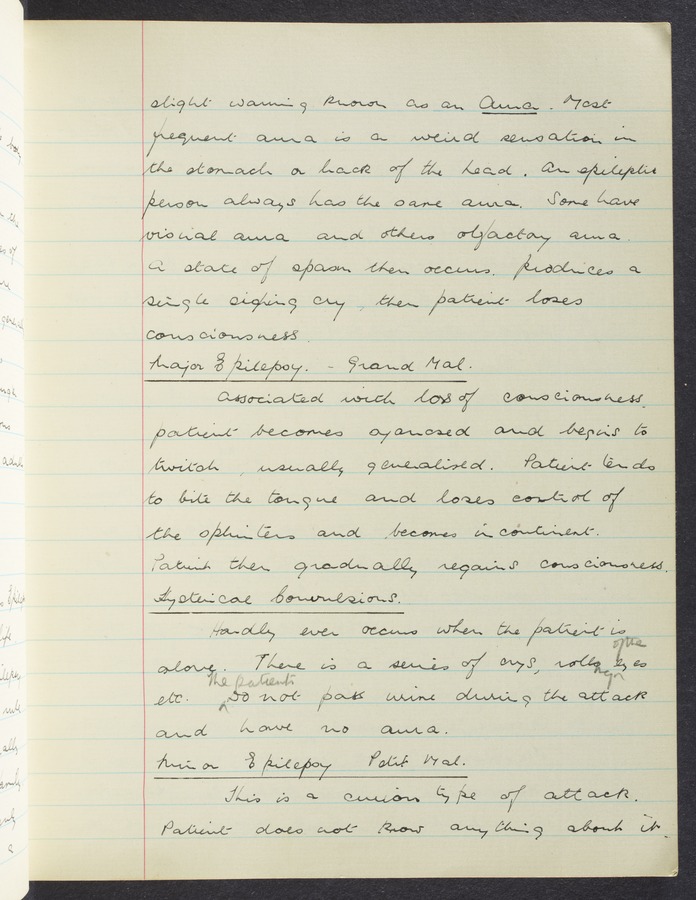 slight warning known as an Aura. Most
frequent aura is a weird sensation in
the stomach or back of the head. An epileptic
person always has the same aura. Some have
visual aura and others olfactory aura.
A state of spasm then occurs. Produces a
single sighing cry, then patient loses
consciousness.
Major Epilepsy. - Grand Mal.
Associated with loss of consciousness.
patient becomes cyanosed and begins to
twitch, usually generalised. Patient tends
to bite the tongue and loses control of
the sphinters and becomes incontinent.
Patient then gradually regains consciousness.
Hysterical Convulsions.
Hardly ever occurs when the patient is
alone. There is a series of crys, rolls eyes
of the
etc. The patients Do not pass urine during the attack
and have no aura.
Minor Epilepsy Petit Mal.
This is a curious type of attack.
Patient does not know anything about it.